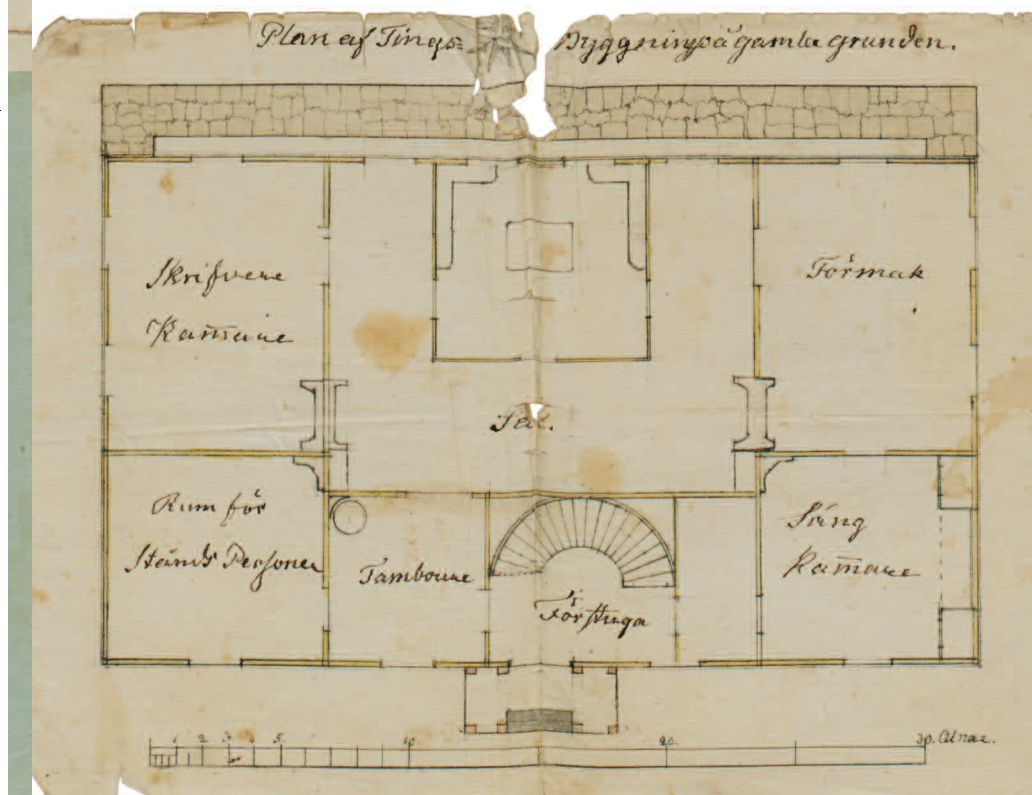 Plan af Tings= Byggning på gamla grunden.
Skrifvare
Kam̄are
Förmak
Sal.
Rum för
Stånds Personer
Tamboure
Förstuga
Säng
Kam̄are
1 2 3 4 5. 10. 20. 30. Alnar.